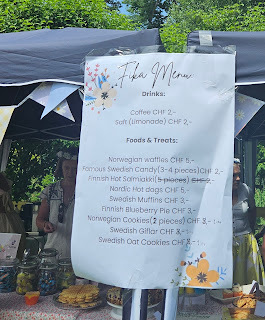 Fika Menu
Drinks:
Coffee CHF 2,-
Saft (Limonade) CHF 2,-
Foods & Treats:
Norwegian waffles CHF 5,-
Famous Swedish Candy(3-4 pieces)CHF 2,-
Finnish Hot Salmiakki(5 pieces) CHF 2,-
Nordic Hot dogs CHF 5,-
Swedish Muffins CHF 3,-
Finnish Blueberry Pie CHF 3,-
Norwegian Cookies(2 pieces) CHF 3,- 1,-
Swedish Giflar CHF 3,- 1,-
Swedish Oat Cookies CHF 3,- 1,-